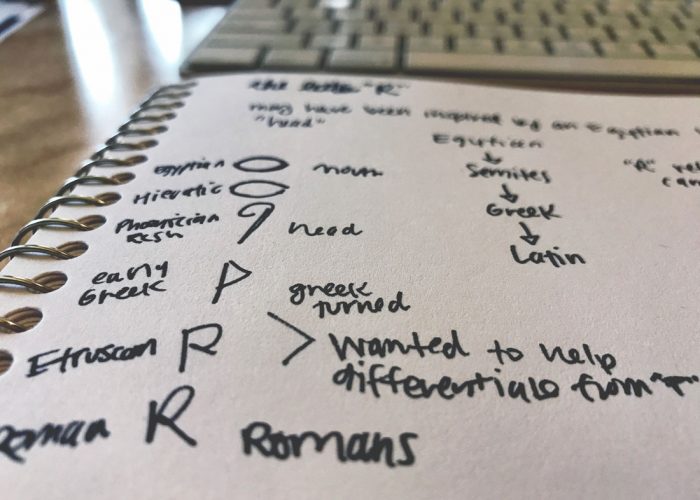 the letter "R"
may have been inspired by an Egyptian
"head"
Egyptian
Semites
Greek
Latin
"R"
Egyptian mouth
Hieratic
Phoenician
Resh head
early
Greek P greek
turned
Etruscan R > Wanted to help
differentiate from "P"
Roman R Romans